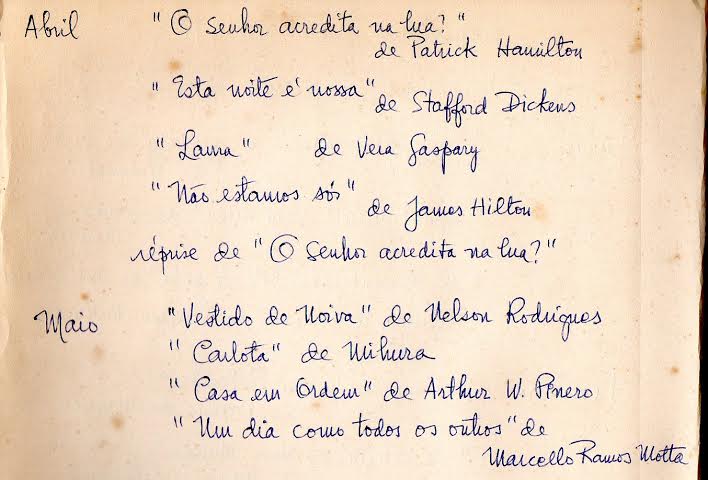 Abril "O Senhor acredita na lua?"
de Patrick Hamilton
"Esta noite é nossa" de Stafford Dickens
"Laura" de Vera Gaspary
"Não estamos sós" de James Hilton
réprise de "O Senhor acredita na lua?"
Maio "Vestido de Noiva" de Nelson Rodrigues
"Carlota" de Mihura
"Casa em Ordem" de Arthur W. Pinero
"Um dia como todos os outros" de
Marcello Ramos Motta